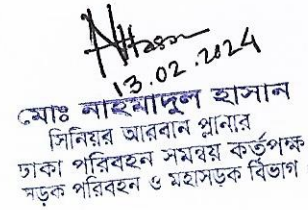 13.02.2024
মোঃ নাহমাদুল হাসান
সিনিয়র আরবান প্লানার
ঢাকা পরিবহন সমন্বয় কর্তৃপক্ষ
সড়ক পরিবহন ও মহাসড়ক বিভাগ